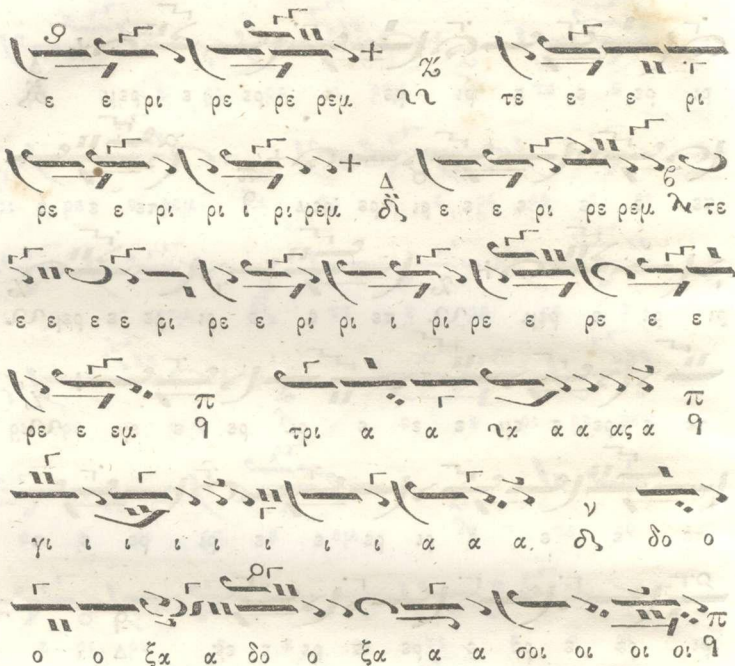 ε ει ρι ρε ρε ρεμ τε ε ε ρι
ρε ε ρι ρι ι ρι ρεμ Δ ε ε ρι ρε ρεμ τε
ε ε ε ε ρι ρε ε ρι ρι ι ρι ρε ε ρε ε ε
ρε ε εμ π q τρι α α ια α α ας α π q
γι ι ι ι ι ι ι ι α α α ν δο ο
ο ο ξα α δο ο ξα α α σοι οι οι οι π q